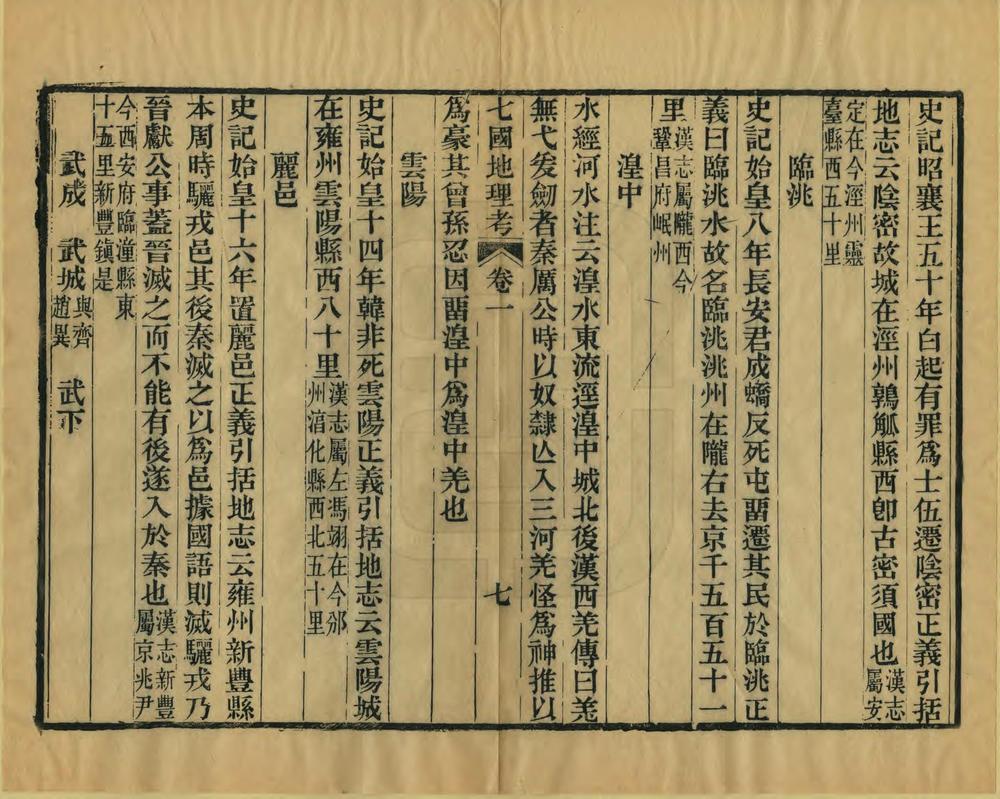 史記昭襄王五十年白起有罪爲士伍遷陰密正義引括
地志云陰密故城在涇州鶉觚縣西卽古密須國也漢志屬安
定在今涇州靈臺縣西五十里
臨洮
史記始皇八年長安君成蟜反死屯畱遷其民於臨洮正
義曰臨洮水故名臨洮洮州在隴右去京千五百五十一
里漢志屬隴西今鞏昌府岷州
湟中
水經河水注云湟水東流逕湟中城北後漢西羌傳曰羌
無弋爰劒者秦厲公時以奴隸亾入三河羌怪爲神推以
七國地理考 卷一 七
爲豪其曾孫忍因畱湟中爲湟中羌也
雲陽
史記始皇十四年韓非死雲陽正義引括地志云雲陽城
在雍州雲陽縣西八十里漢志屬左馮翊在今邠州淯化縣西北五十里
麗邑
史記始皇十六年置麗邑正義引括地志云雍州新豐縣
本周時驪戎邑其後秦滅之以爲邑據國語則滅驪戎乃
晉獻公事蓋晉滅之而不能有後遂入於秦也漢志新豐屬京兆尹
今西安府臨潼縣東十五里新豐鎭是
武成 武城與齊趙異 武下